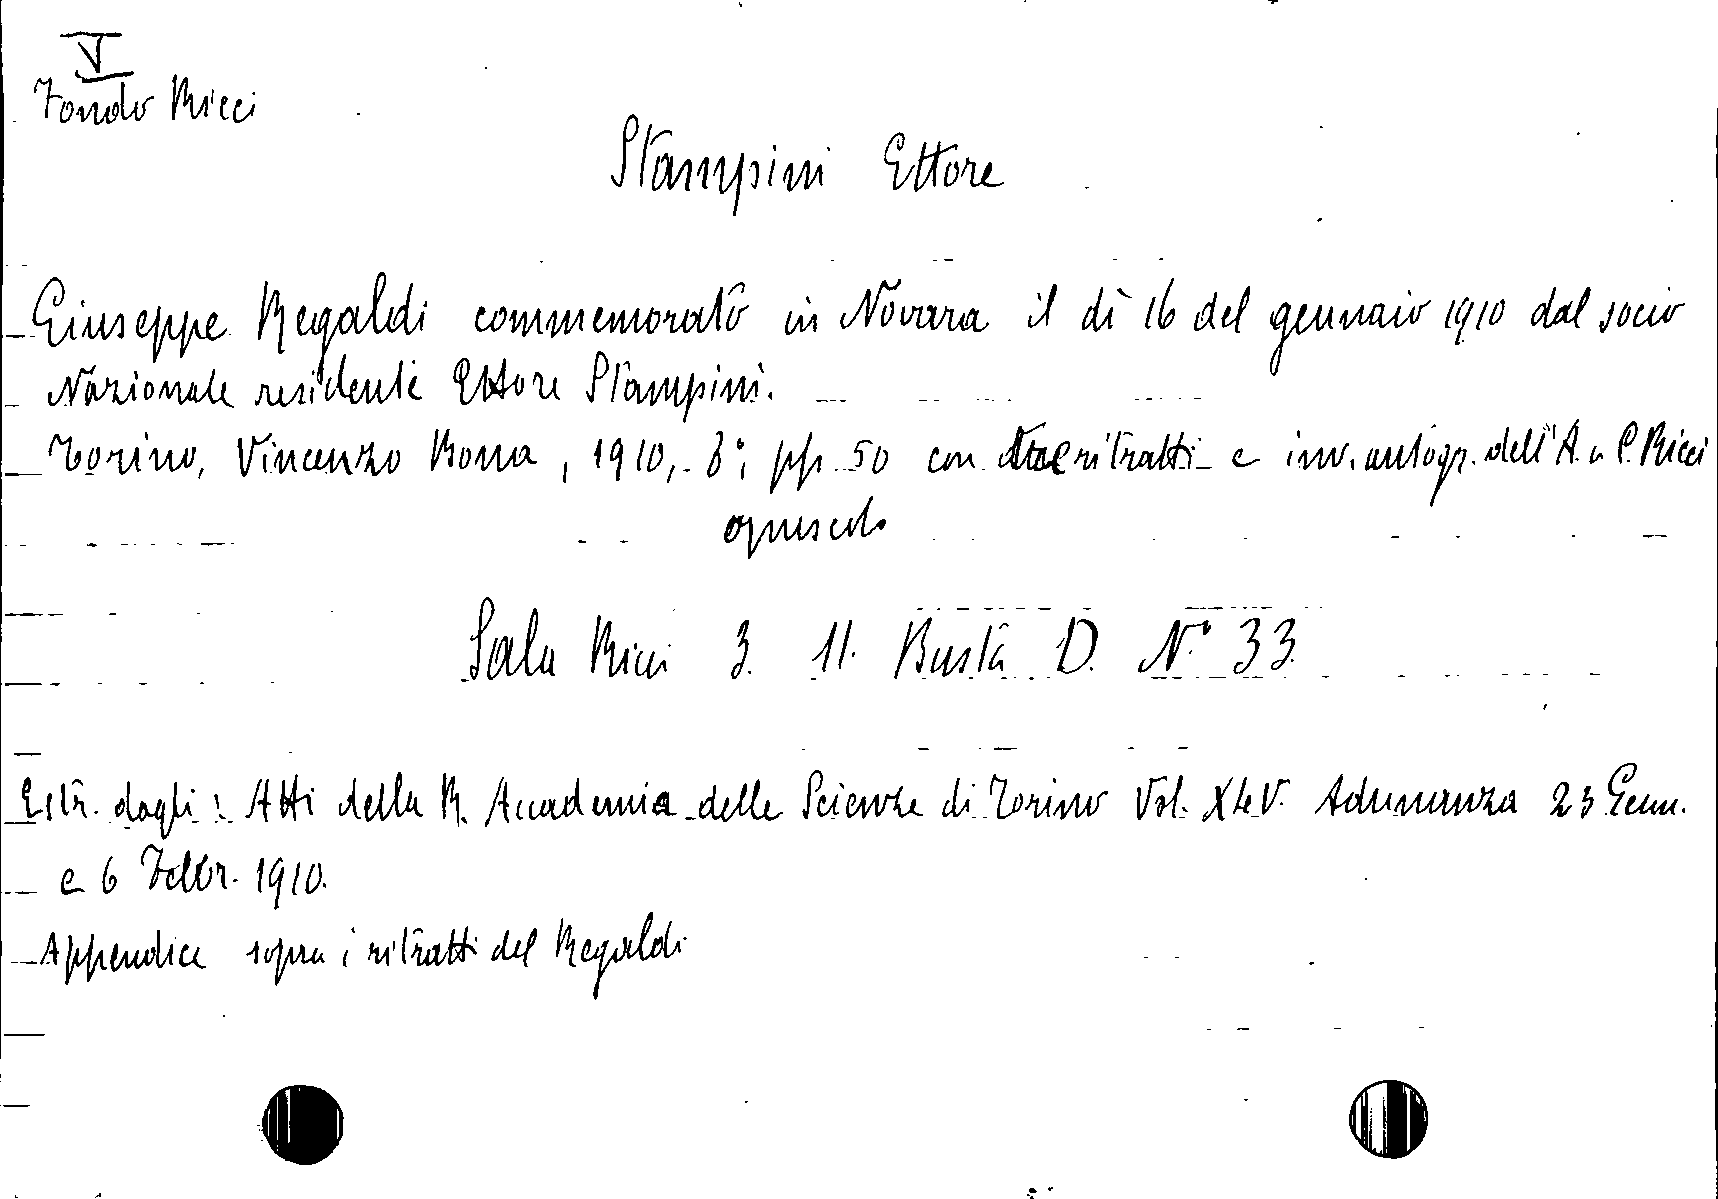 V
Fondo Ricci
Stampini Ettore
Giuseppe Regaldi commemorato in Novara il dì 16 del gennaio 1910 dal socio
Nazionale residente Ettore Stampini.
Torino, Vincenzo Bona, 1910, 8°, pp. 50 con due ritratti e inv. autogr. dell'A. a C. Ricci
opuscolo
Sala Ricci 3. 11. Busta D. N° 33.
Estr. dagli: Atti della R. Accademia delle Scienze di Torino Vol. XLV. Adunanza 23 Genn.
e 6 Febbr. 1910.
Appendice sopra i ritratti del Regaldi